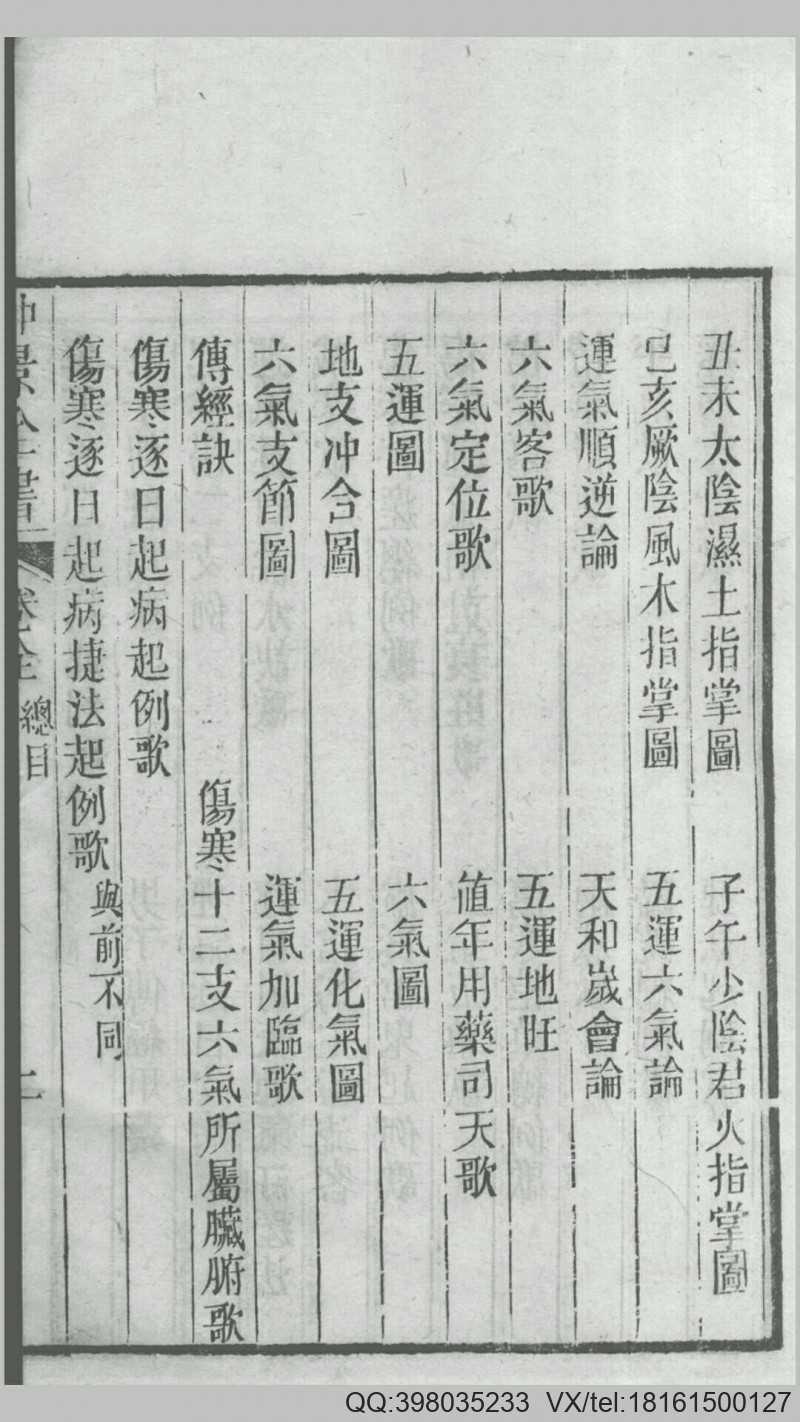 丑未太陰濕土指掌圖　子午少陰君火指掌圖
巳亥厥陰風木指掌圖　五運六氣論
運氣順逆論　天和歲會論
六氣客歌　五運地旺
六氣定位歌　値年用藥司天歌
五運圖　六氣圖
地支冲合圖　五運化氣圖
六氣支節圖　運氣加臨歌
傳經訣　傷寒十二支六氣所屬臟腑歌
傷寒逐日起病起例歌
傷寒逐日起病捷法起例歌 與前不同
總目
QQ:398035233 VX/tel:18161500127